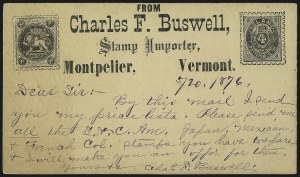 FROM
Charles F. Buswell,
Stamp Importer,
Montpelier, Vermont.
5/20. 1876.
Dear Sir:
By this mail I send
you my price lists. Please send me
all the Japan, Mexican,
& French Col. stamps you have to spare
& I will make you an offer for them.
Chas. F. Buswell.